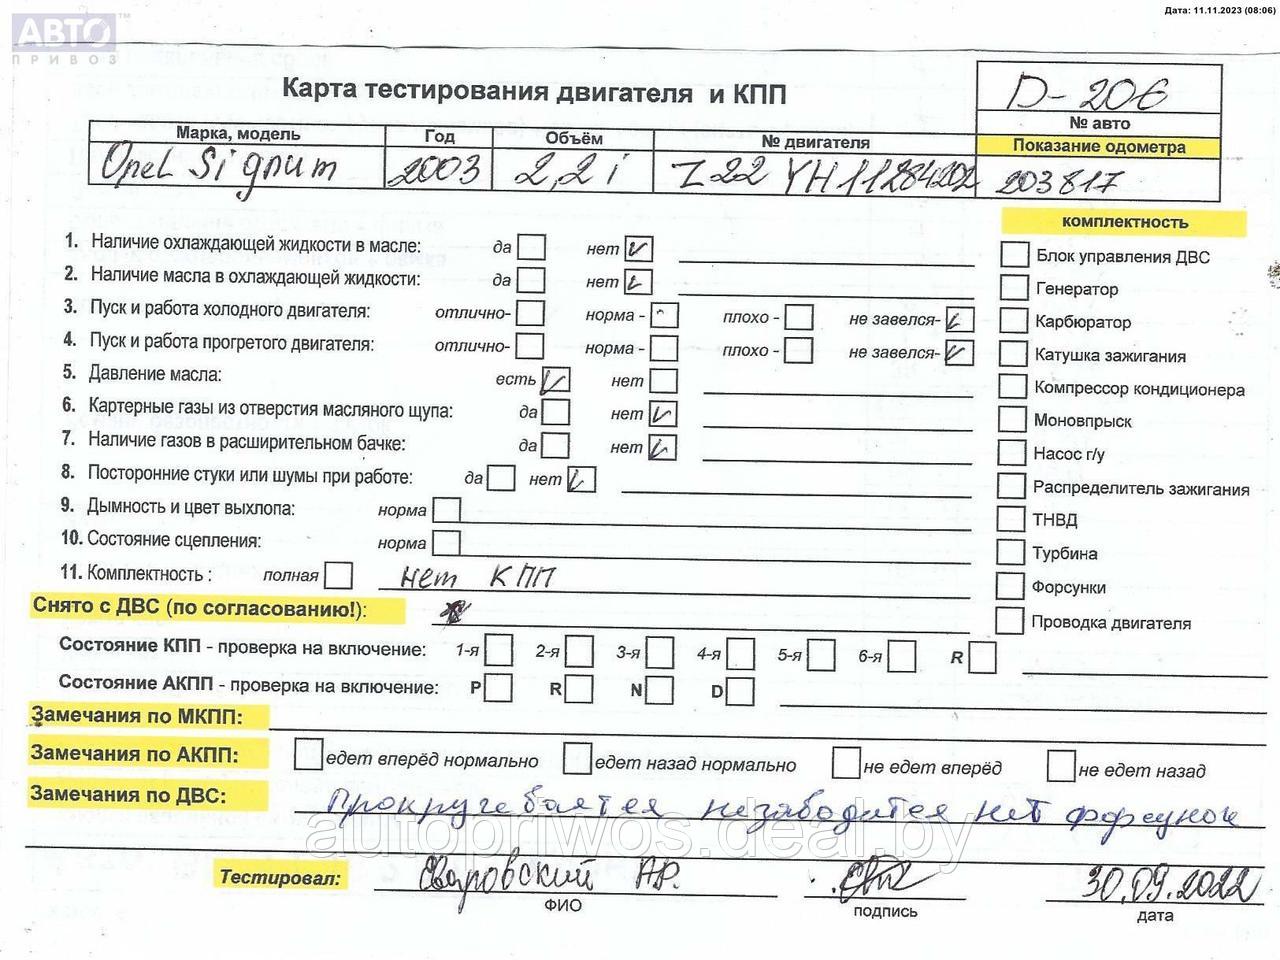 Дата: 11.11.2023 (08:06)
АВТО™
ПРИВОЗ
Карта тестирования двигателя и КПП
D-206
№ авто
Марка, модель Год Объём № двигателя Показание одометра
Opel Signum 2003 2,2 i Z22 YH 11284202 203817
комплектность
1. Наличие охлаждающей жидкости в масле: да нет
Блок управления ДВС
2. Наличие масла в охлаждающей жидкости: да нет
Генератор
3. Пуск и работа холодного двигателя: отлично- норма - плохо - не завелся-
Карбюратор
4. Пуск и работа прогретого двигателя: отлично- норма - плохо - не завелся-
Катушка зажигания
5. Давление масла: есть нет
Компрессор кондиционера
6. Картерные газы из отверстия масляного щупа: да нет
Моновпрыск
7. Наличие газов в расширительном бачке: да нет
Насос г/у
8. Посторонние стуки или шумы при работе: да нет
Распределитель зажигания
9. Дымность и цвет выхлопа: норма
ТНВД
10. Состояние сцепления: норма
Турбина
11. Комплектность : полная нет КПП
Форсунки
Снято с ДВС (по согласованию!):
Проводка двигателя
Состояние КПП - проверка на включение: 1-я 2-я 3-я 4-я 5-я 6-я R
Состояние АКПП - проверка на включение: P R N D
Замечания по МКПП:
Замечания по АКПП: едет вперёд нормально едет назад нормально не едет вперёд не едет назад
Замечания по ДВС: прокручевается незаводится нет форсунок
autopriwos.deal.by
Тестировал: АР. 30.09.2022
ФИО подпись дата